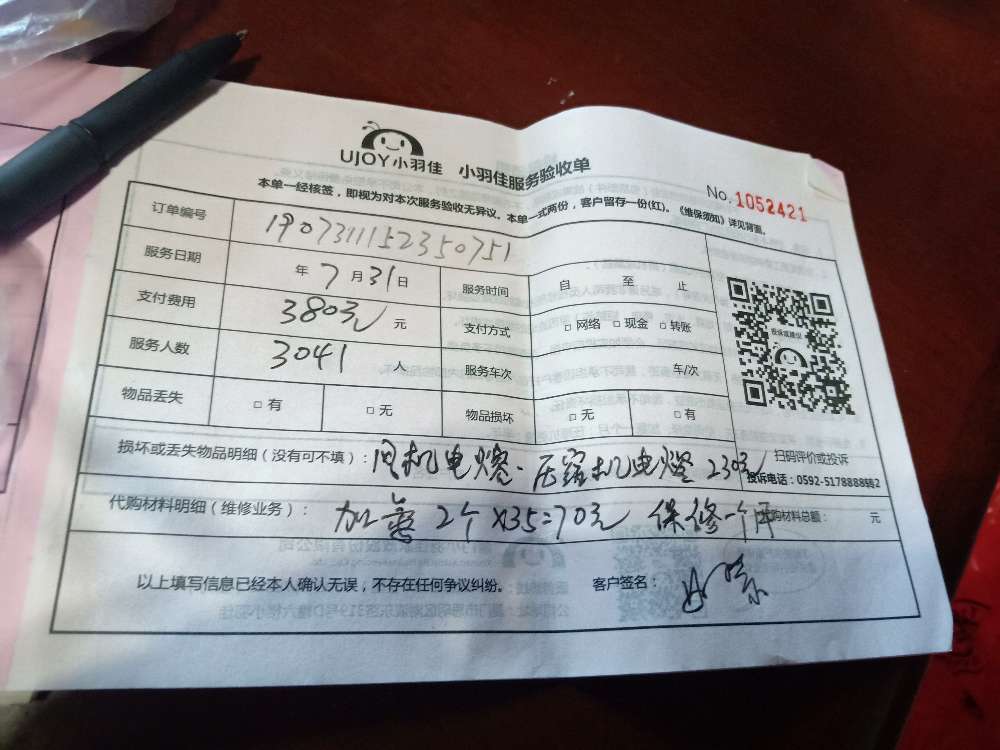 UJOY小羽佳 小羽佳服务验收单
No.1052421
本单一经核签，即视为对本次服务验收无异议。本单一式两份，客户留存一份(红)。《维保须知》详见背面。
订单编号 1907311152350751
服务日期 年 7 月 31 日 服务时间 自 至 止
支付费用 380元 元 支付方式 □ 网络 □ 现金 □ 转账
服务人数 3041 人 服务车次 车/次
物品丢失 □ 有 □ 无 物品损坏 □ 无 □ 有
投诉或建议
扫码评价或投诉
投诉电话：0592-5178888转2
损坏或丢失物品明细（没有可不填）： 风机电熔·压缩机电熔 230元
代购材料明细（维修业务）： 加 2个X35=70元 保修一个月 代购材料总额： 元
以上填写信息已经本人确认无误，不存在任何争议纠纷。 客户签名：